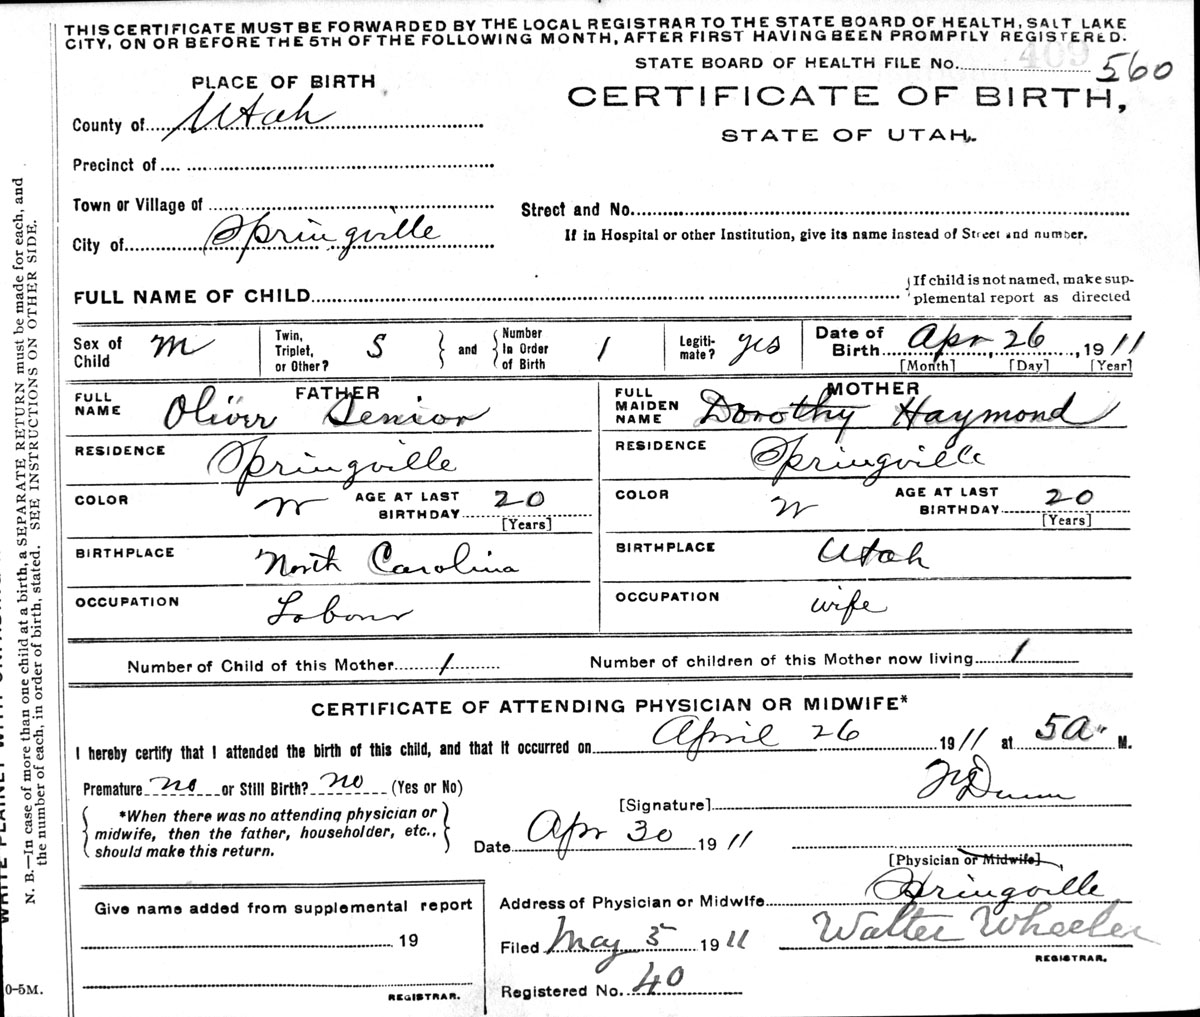 THIS CERTIFICATE MUST BE FORWARDED BY THE LOCAL REGISTRAR TO THE STATE BOARD OF HEALTH, SALT LAKE
CITY, ON OR BEFORE THE 5TH OF THE FOLLOWING MONTH, AFTER FIRST HAVING BEEN PROMPTLY REGISTERED.
STATE BOARD OF HEALTH FILE No. 409 560
PLACE OF BIRTH
CERTIFICATE OF BIRTH,
STATE OF UTAH.
County of Utah
Precinct of
Town or Village of
Street and No.
City of Springville
If in Hospital or other Institution, give its name instead of Street and number.
FULL NAME OF CHILD
If child is not named, make sup-
plemental report as directed
Sex of Child M
Twin, Triplet, or Other? S and Number In Order of Birth 1
Legiti-mate? yes
Date of Birth Apr 26, 1911
[Month] [Day] [Year]
FATHER
FULL NAME Oliver Senior
MOTHER
FULL MAIDEN NAME Dorothy Haymond
RESIDENCE Springville
RESIDENCE Springville
COLOR W AGE AT LAST BIRTHDAY 20 [Years]
COLOR W AGE AT LAST BIRTHDAY 20 [Years]
BIRTHPLACE North Carolina
BIRTHPLACE Utah
OCCUPATION Labour
OCCUPATION wife
Number of Child of this Mother 1
Number of children of this Mother now living 1
CERTIFICATE OF ATTENDING PHYSICIAN OR MIDWIFE*
I hereby certify that I attended the birth of this child, and that it occurred on April 26 1911 at 5 a. M.
Premature no or Still Birth? no (Yes or No)
[Signature] Dunn
*When there was no attending physician or
midwife, then the father, householder, etc.,
should make this return.
Date Apr 30 1911
[Physician or Midwife]
Address of Physician or Midwife Springville
Give name added from supplemental report
19
REGISTRAR.
Filed May 5 1911
Walter Wheeler
REGISTRAR.
Registered No. 40
N. B.—In case of more than one child at a birth, a SEPARATE RETURN must be made for each, and
the number of each, in order of birth, stated. SEE INSTRUCTIONS ON OTHER SIDE.
0-5M.